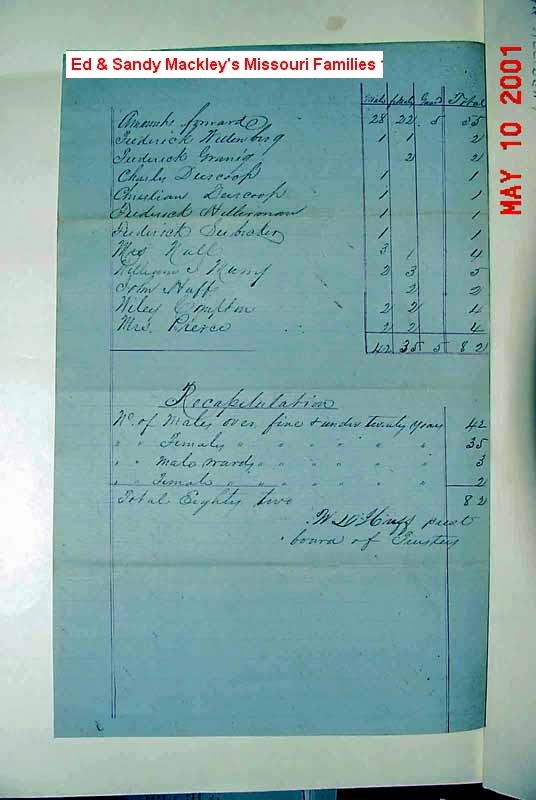 Ed & Sandy Mackley's Missouri Families
MAY 10 2001
Male Female Total
Amounts forward 28 22 5 55
Frederick 1 1 2
Frederick 2 2
Charles Deiscoop 1 1
Christian Deiscoop 1 1
Frederick Hellerman 1 1
Frederick 1 1
Mrs Null 3 1 4
William 2 3 5
John Huff 2 2
Wiley Compton 2 2 4
Mrs. Pierce 2 2 4
42 35 5 82
Recapitulation
No. of Males over five & under twenty years 42
" " Females " " " " " " 35
" " Male wards " " " " " 3
" " Female " " " " " " 2
Total Eighty two 82
W D Huff prest
board of Trustees